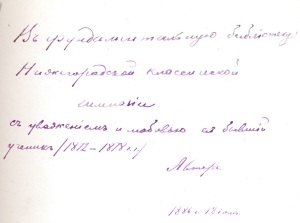 Въ фундаментальную библіотеку
Нижегородской классической
гимназіи
съ уваженіемъ и любовью ея бывшій
ученикъ (1872–1878 г.)
Авторъ
1886